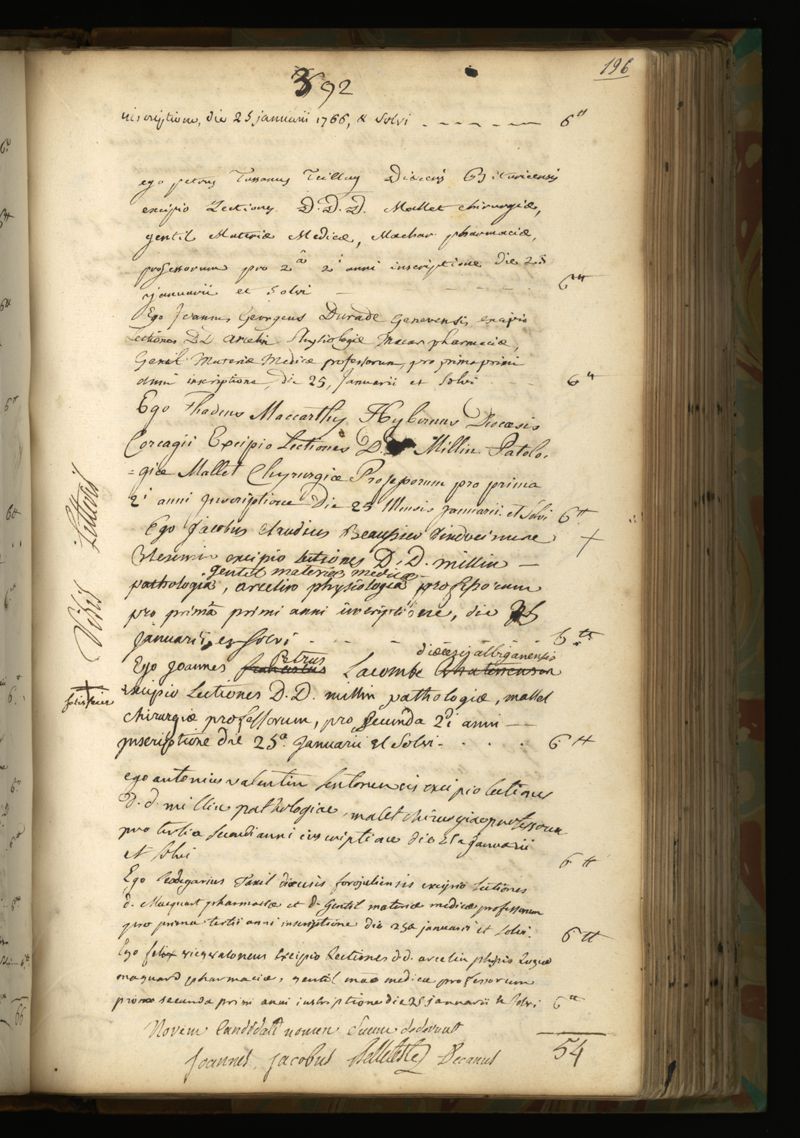 196
392
inscriptione, die 25 januarii 1766, & Solvi 6tt
ego petrus Tussanus Teillay Diœcesis Bituricensis
excipio Lectiones D.D.D. Mallet chirurgiæ,
gentil Materiæ Medicæ, Macbar pharmaciæ,
professorum pro 2â 2i anni inscriptione die 25
januarii et Solvi 6tt
Ego Joannes Georgeus Durade Genevensis, excipio
Lectiones DD Arcelin Physiologiæ Macar pharmaciæ,
Gentil Materiæ Medicæ professorum, pro prima primi
anni inscriptione, die 25, Januarii et Solvi 6tt
Ego Thadeus Maccarthy Hybernus Diocæsis
Corcagii Excipio Lectiones D. Millin Patolo-
=giæ Mallet Chyrurgiæ Professorum pro prima
2i anni Inscriptione Die 25 Mensis Januarii et Solvi 6tt
Ego Jacobus Claudius Beaussieu Vindocinus
excipio lectiones D.D. millin
gentil materiæ medicæ
pathologiæ, arcelin physiologiæ professorum
pro primâ primi anni inscriptione, die 25
Januarii, et Solvi 6tt
Visis Litteris
diœcesis albiganensis
Petrus
Ego Joannes Lacombe
excipio Lectiones D.D. millin pathologiæ, mallet
chirurgiæ professorum, pro secunda 2di anni
inscriptione die 25a Januarii et Solvi 6tt
ego antonius valentin excipio lectiones
D. d. millin pathologiae, malet chirurgiae professorum
pro tertia secundi anni inscriptione die 25a januarii
et solvi 6tt
Ego leodegarius Taxil diœcesis forojuliensis excipio lectiones
d. Macquart pharmaciæ et d. Gentil materiæ medicæ professorum
pro prima tertii anni inscriptione die 25a januarii et solvi. 6tt
Ego felix vicqvaloneus Excipio Lectiones d.d. arcelin physiologiæ
maquard pharmaciæ, gentil mae medicæ professorum
pro secunda primi anni inscriptione die 25 januarii & solvi 6tt
Novem Candidati nomen suum dederunt
54
Joannes Jacobus Belleteste Decanus